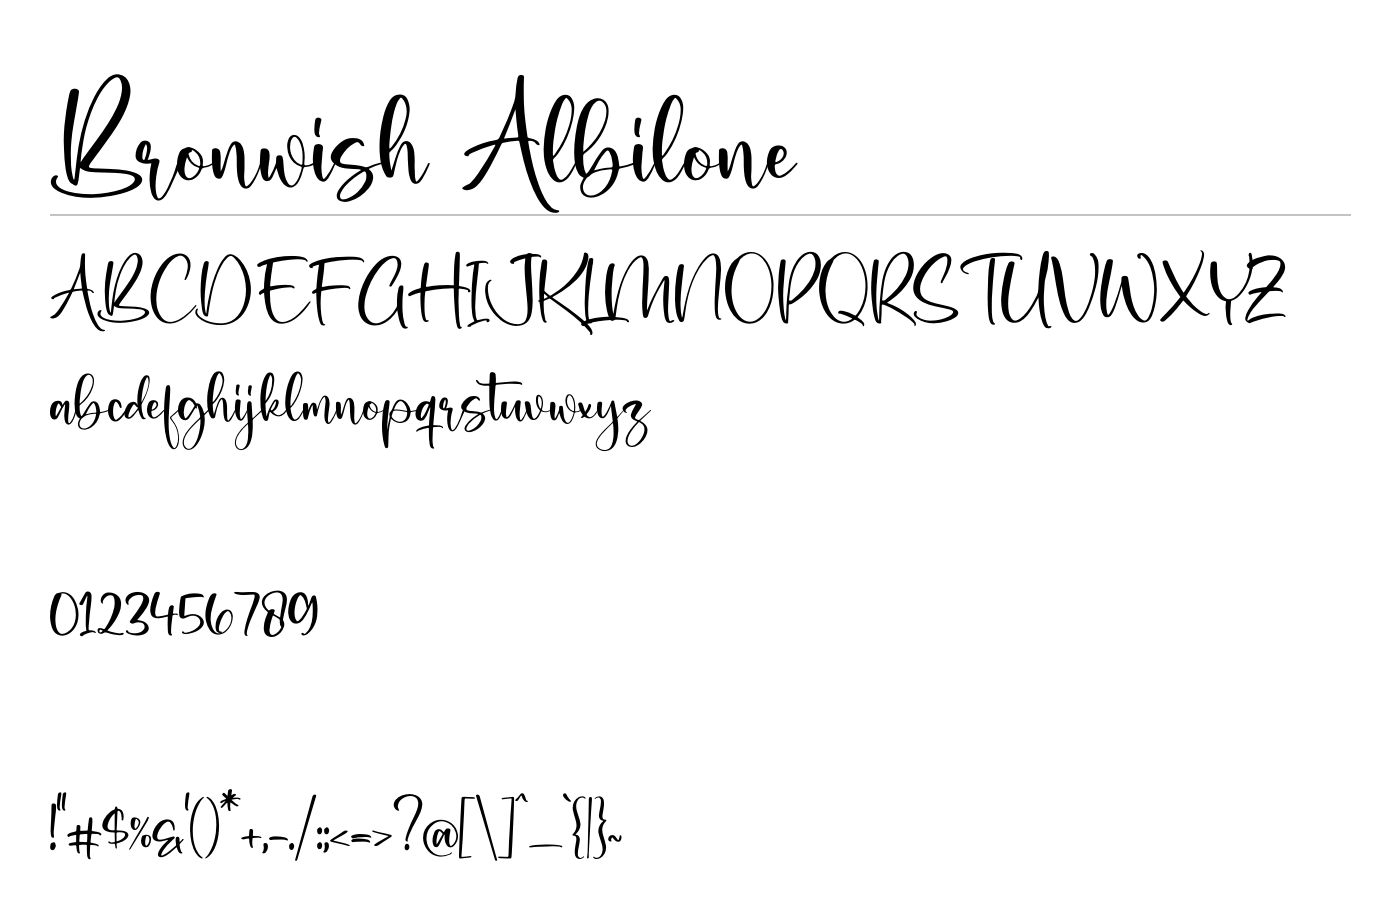 Bronwish Albilone
ABCDEFGHIJKLMNOPQRSTUVWXYZ
abcdefghijklmnopqrstuvwxyz
0123456789
!"#$%&'()*+,-./:;<=>?@[\]^_`{|}~